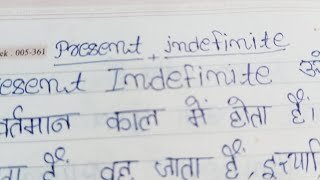 ck . 005-361 Present + indefinite
esent Indefinite
वर्तमान काल में होता हैं।
हैं, वह जाता हैं, इत्यादि